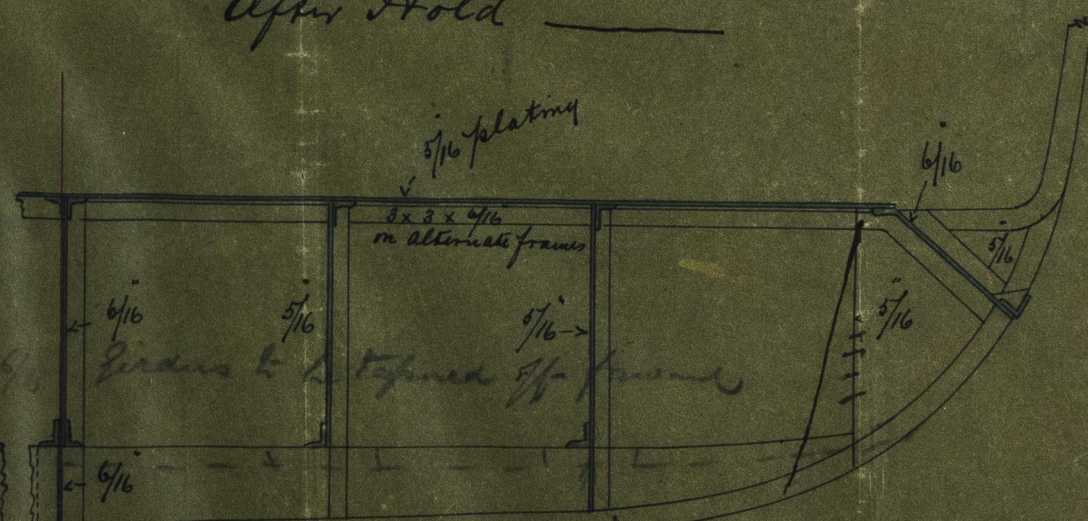 After Hold
5/16" plating
6/16"
3 x 3 x 6/16"
on alternate frames
5/16
6/16"
5/16"
5/16"
5/16"
Girders to be tapered off forward
6/16"